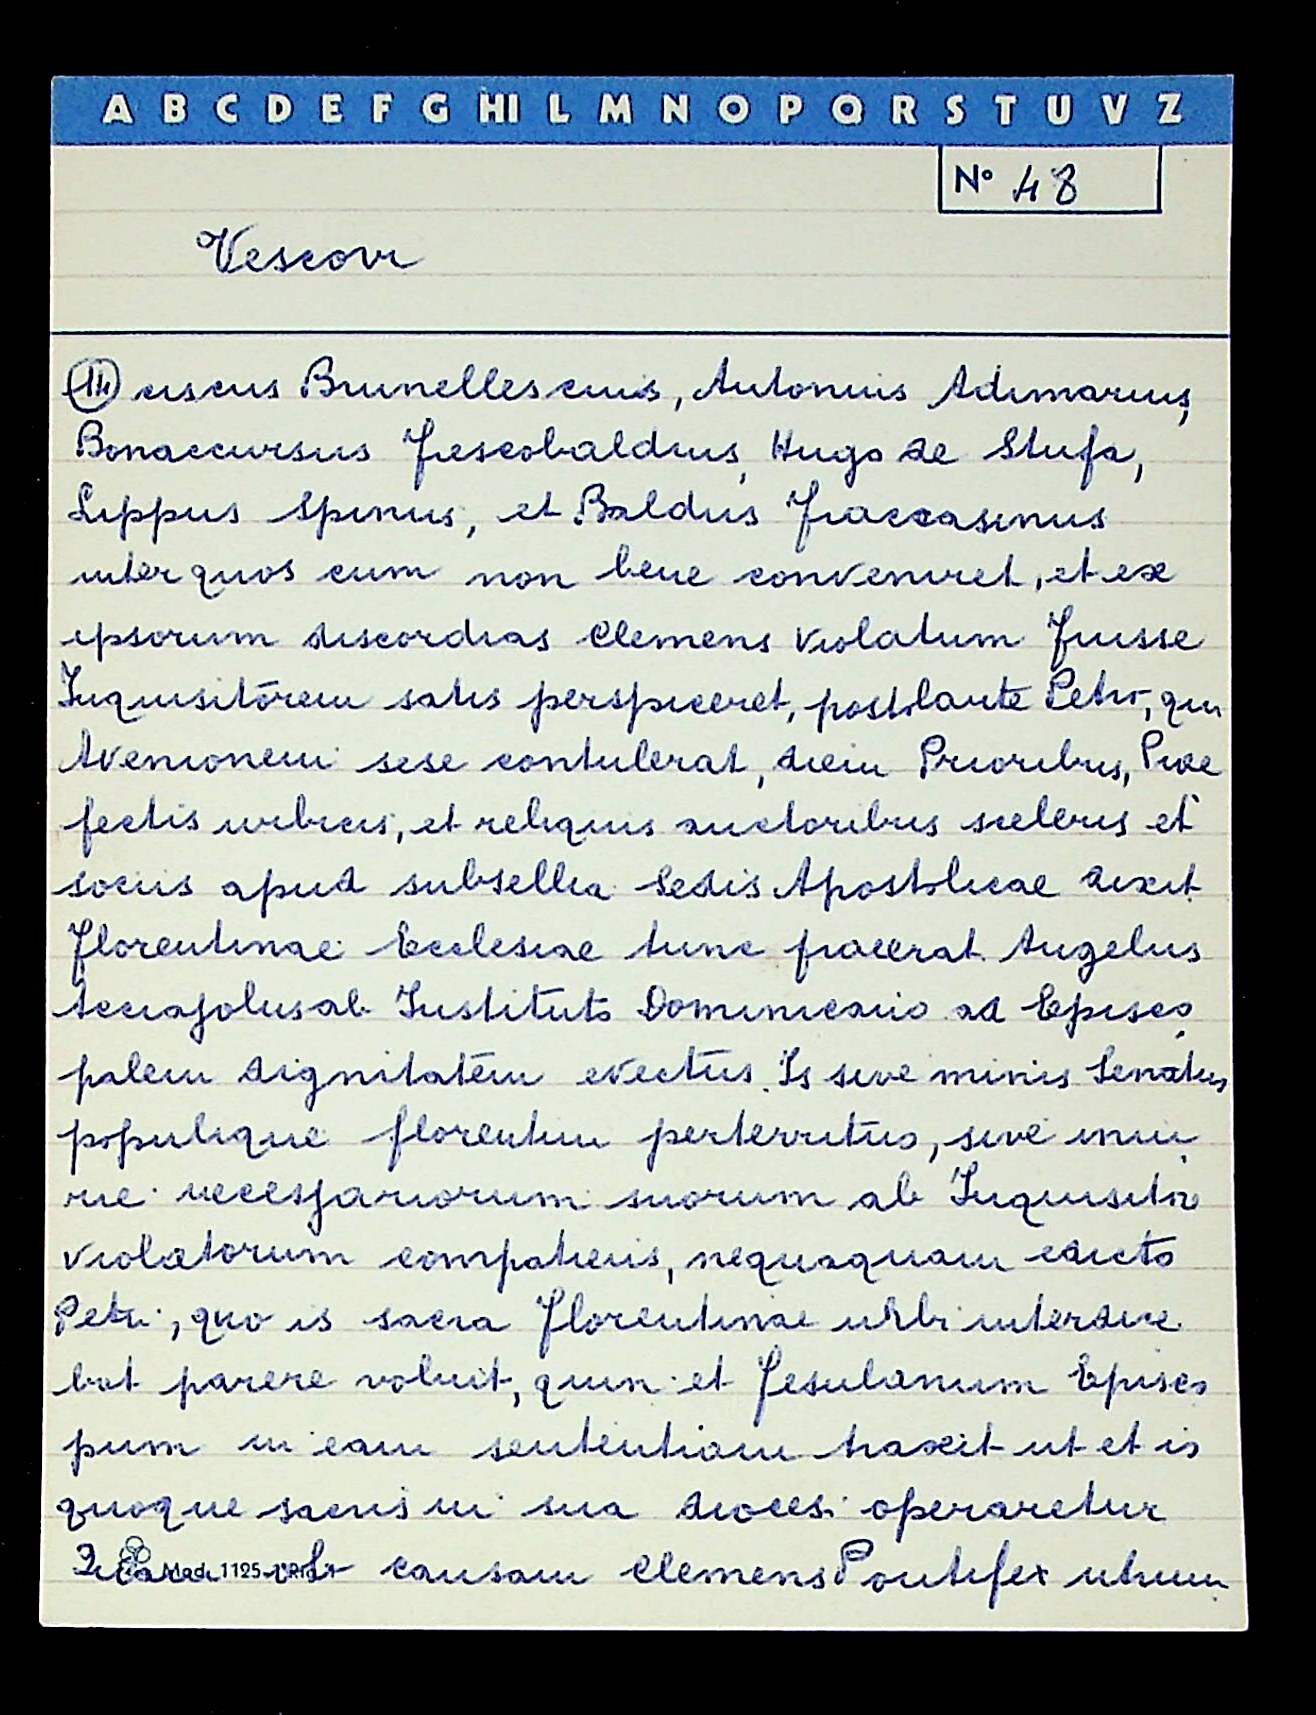 A B C D E F G HI L M N O P Q R S T U V Z
N° 48
Vescovi
14 ciscus Brunellescuis, Antonius Adimarius,
Bonaccursus Frescobaldius, Hugo de Stufa,
Lippus Spinus, et Baldus Fraccasinus
inter quos cum non bene conveniret, et ex
ipsorum discordias Clemens violatum fuisse
Inquisitorem satis perspiceret, postulante Petro, qui
Avenionem sese contulerat, diem Prioribus, Prae
fectis urbicis, et reliquis auctoribus sceleris et
sociis apud subsellia Sedis Apostolicae dixit
Florentinae Ecclesiae tunc praeerat Angelus
Acciajolus ab Instituto Dominicano ad Episco
palem dignitatem evectus. Is sive minis Senatus
populique florentini perterritus, sive iniu
rie necessariorum suorum ab Inquisitore
violatorum compatiens, nequaquam edicto
Petri, quo is sacra Florentinae urbi interdice
bat parere voluit, quin et Fesulanum Episco
pum in eam sententiam traxit ut et is
quoque sacris in sua diocesi operaretur
Quam ob causam Clemens Pontifex utrum
Mod. 1125